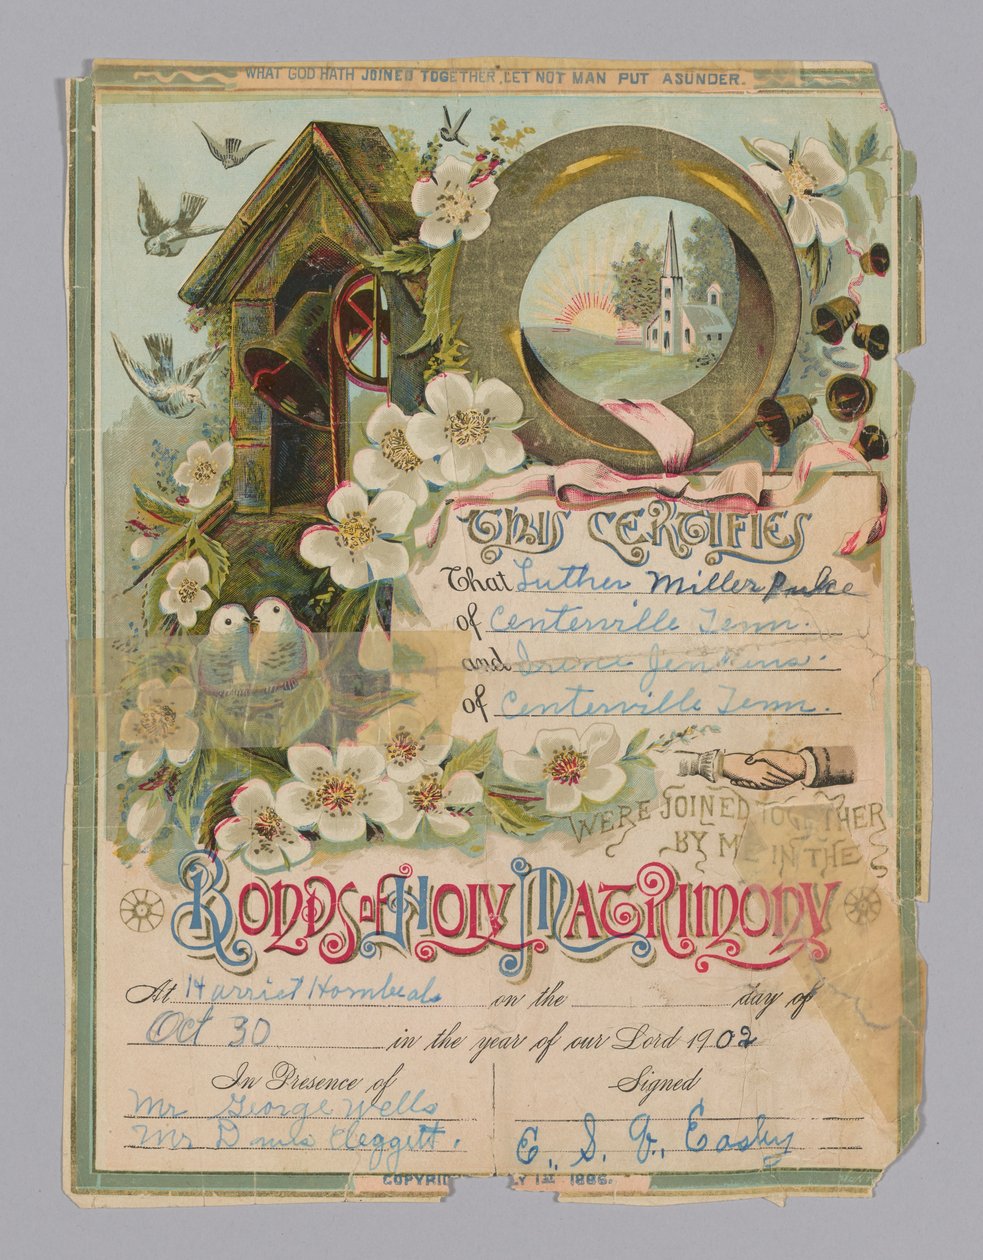 WHAT GOD HATH JOINED TOGETHER, LET NOT MAN PUT ASUNDER.
THIS CERTIFIES
That Luther Miller
of Centerville Tenn.
and Irene Jenkins.
of Centerville Tenn.
WERE JOINED TOGETHER
BY ME IN THE
BONDS OF HOLY MATRIMONY
At Harriet Hornbeals on the day of
Oct 30 in the year of our Lord 1902
In Presence of
Mr George Wells
Mr Cleggett.
Signed
E. S. J. Easley
COPYRI LY 1ST 1886.